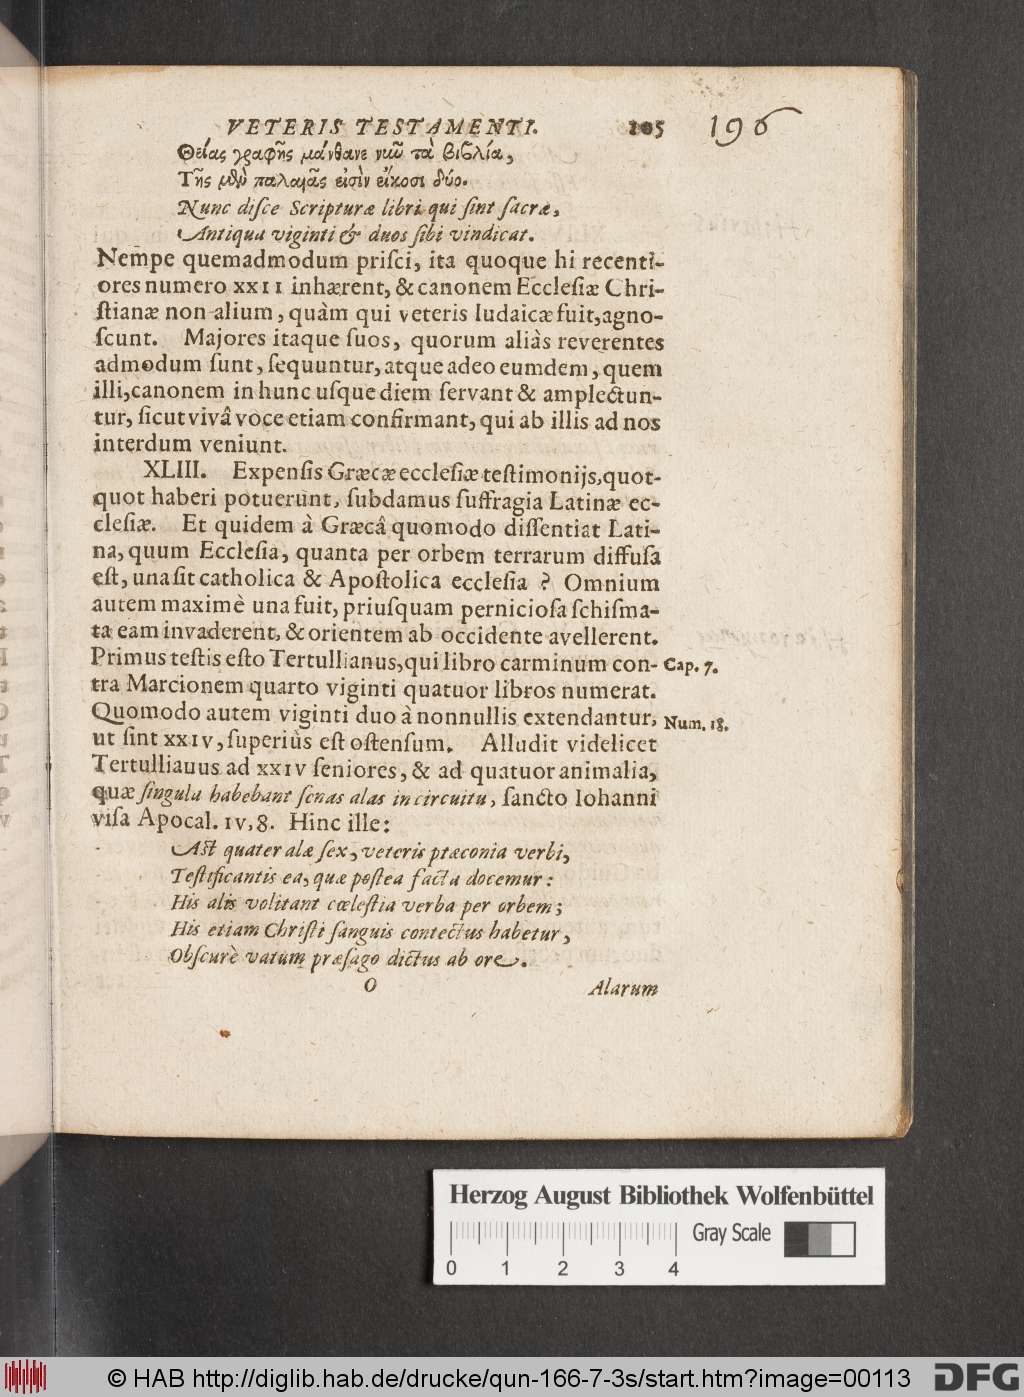 VETERIS TESTAMENTI. 105 196
Θείας γραφῆς μάνθανε νιῦ τὰ βιβλία,
Τῆς μὲν παλαιᾶς εἰσὶν εἴκοσι δύο.
Nunc diſce Scripturæ libri qui ſint ſacræ,
Antiqua viginti & duos ſibi vindicat.
Nempe quemadmodum priſci, ita quoque hi recenti-
ores numero XXII inhærent, & canonem Eccleſiæ Chri-
ſtianæ non alium, quàm qui veteris Iudaicæ fuit, agno-
ſcunt. Majores itaque ſuos, quorum aliàs reverentes
admodum ſunt, ſequuntur, atque adeo eumdem, quem
illi, canonem in hunc uſque diem ſervant & amplectun-
tur, ſicut vivâ voce etiam confirmant, qui ab illis ad nos
interdum veniunt.
XLIII. Expenſis Græcæ eccleſiæ teſtimonijs, quot-
quot haberi potuerunt, ſubdamus ſuffragia Latinæ ec-
cleſiæ. Et quidem à Græcâ quomodo diſſentiat Lati-
na, quum Eccleſia, quanta per orbem terrarum diffuſa
eſt, una ſit catholica & Apoſtolica eccleſia ? Omnium
autem maximè una fuit, priuſquam pernicioſa ſchiſma-
ta eam invaderent, & orientem ab occidente avellerent.
Primus teſtis eſto Tertullianus, qui libro carminum con- Cap. 7.
tra Marcionem quarto viginti quatuor libros numerat.
Quomodo autem viginti duo à nonnullis extendantur, Num. 18.
ut ſint XXIV, ſuperiùs eſt oſtenſum. Alludit videlicet
Tertulliauus ad XXIV ſeniores, & ad quatuor animalia,
quæ ſingula habebant ſenas alas in circuitu, ſancto Iohanni
viſa Apocal. IV, 8. Hinc ille:
Aſt quater alæ ſex, veteris ptæconia verbi,
Teſtificantis ea, quæ poſtea facta docemur:
His alis volitant cœleſtia verba per orbem;
His etiam Chriſti ſanguis contectus habetur,
Obſcurè vatum præſago dictus ab ore.
O Alarum
Herzog August Bibliothek Wolfenbüttel
Gray Scale
0 1 2 3 4
© HAB http://diglib.hab.de/drucke/qun-166-7-3s/start.htm?image=00113
DFG